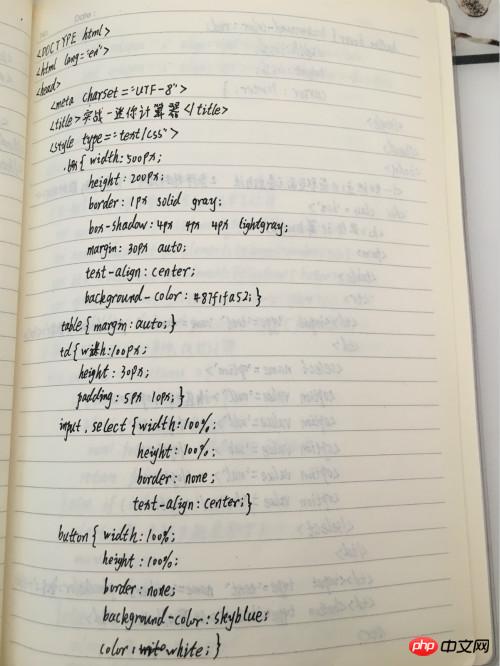 Date:
<DOCTYPE html>
<html lang="en">
<head>
<meta charset="UTF-8">
<title>实战-迷你计算器</title>
<style type="text/css">
width:500px;
height:200px;
border:1px solid gray;
box-shadow:4px 4px 4px lightgray;
margin:30px auto;
text-align:center;
background-color: #87f1fa52;}
table{margin:auto;}
td{width:100px;
height:30px;
padding:5px 10px;}
input,select{width:100%;
height:100%;
border:none;
text-align:center;}
button{width:100%;
height:100%;
border:none;
background-color:skyblue;
color:white;}
php中文网